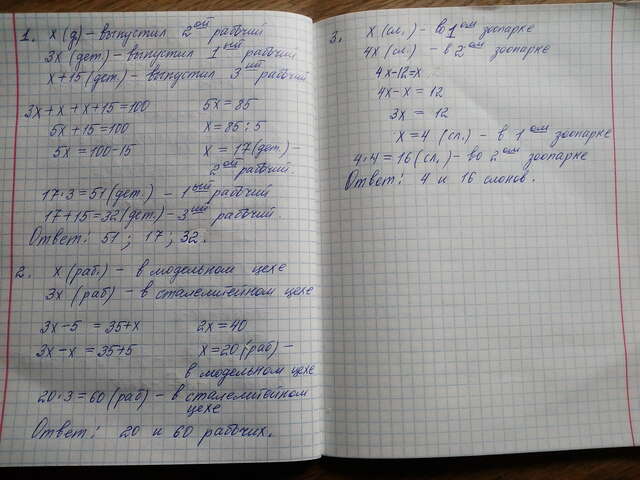 1. x (д) - выпустил 2ой рабочий
3x (дет.) - выпустил 1ый рабочий
x+15 (дет.) - выпустил 3ий рабочий
3x+x+x+15=100
5x+15=100
5x=100-15
5x=85
x=85:5
x=17 (дет.) -
2ой рабочий.
17·3=51 (дет.) - 1ый рабочий
17+15=32 (дет.) - 3ий рабочий.
Ответ: 51; 17; 32.
2. x (раб.) - в модельном цехе
3x (раб) - в сталелитейном цехе
3x-5=35+x
3x-x=35+5
2x=40
x=20 (раб) -
в модельном цехе
20·3=60 (раб) - в сталелитейном
цехе
Ответ: 20 и 60 рабочих.
3. x (сл.) - во 1ом зоопарке
4x (сл.) - в 2ом зоопарке
4x-12=x
4x-x=12
3x=12
x=4 (сл.) - в 1ом зоопарке
4·4=16 (сл.) - во 2ом зоопарке
Ответ: 4 и 16 слонов.